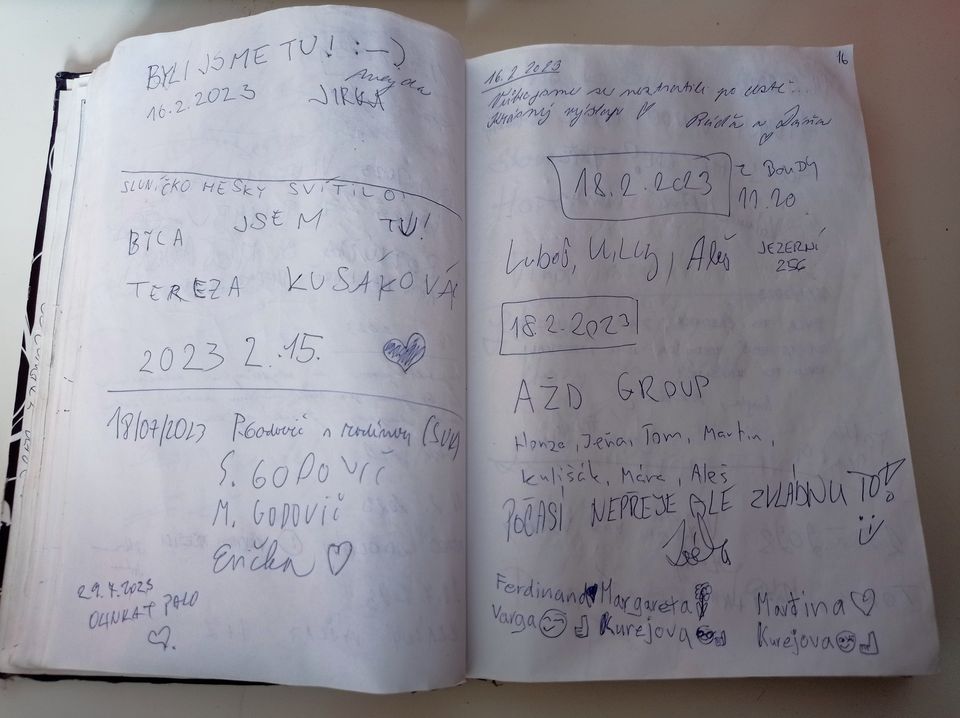 BYLI JSME TU! :-)
16.2.2023 JIRKA
SLUNÍČKO HESKY SVÍTILO!
BYLA JSEM TU!
TEREZA KUSÁKOVÁ
2023 2.15.
18/07/2023 P. Godovič s rodinou (SVK)
S. GODOVIČ
M. GODOVIČ
Erička
29.7.2023
PALO
16
16.2.2023
se neztratili po cestě...
Krásný výstup
Ráďa a
18.2.2023 z BOUDY
11.20
Luboš, Aleš JEZERNÍ
256
18.2.2023
AŽD GROUP
Honza, Jeňa, Tom, Martin,
Kulišák, Mára, Aleš
POČASÍ NEPŘEJE ALE ZVLÁDNU TO!
Ferdinand Margareta Martina
Varga Kurejova Kurejova